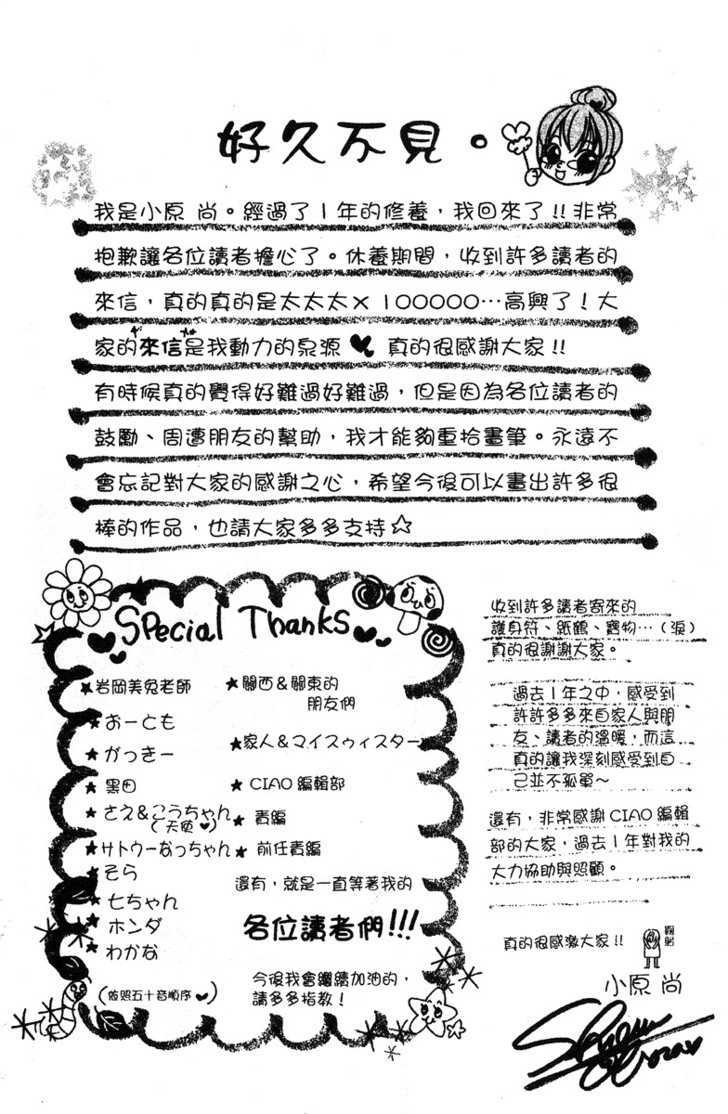 好久不見。
我是小原 尚。經過了1年的修養，我回來了!!非常
抱歉讓各位讀者擔心了。休養期間，收到許多讀者的
來信，真的真的是太太太×100000…高興了！大
家的來信是我動力的泉源♥ 真的很感謝大家!!
有時候真的覺得好難過好難過，但是因為各位讀者的
鼓勵、周遭朋友的幫助，我才能夠重拾畫筆。永遠不
會忘記對大家的感謝之心，希望今後可以畫出許多很
棒的作品，也請大家多多支持☆
Special Thanks
★岩岡美兔老師
★おーとも
★がっきー
★黒田
★さえ&こうちゃん
(天使♥)
★サトウーなっちゃん
★そら
★七ちゃん
★ホンダ
★わかな
(依照五十音順序♥)
★關西&關東的
朋友們
★家人&マイスウィスター
★CIAO編輯部
★責編
★前任責編
還有，就是一直等著我的
各位讀者們!!!
今後我會繼續加油的，
請多多指教！
收到許多讀者寄來的
護身符、紙鶴、寶物…（淚）
真的很謝謝大家。
過去1年之中，感受到
許許多多來自家人與朋
友、讀者的溫暖，而這
真的讓我深刻感受到自
己並不孤單～
還有，非常感謝CIAO編輯
部的大家，過去1年對我的
大力協助與照顧。
真的很感激大家!!
鞠躬
小原 尚